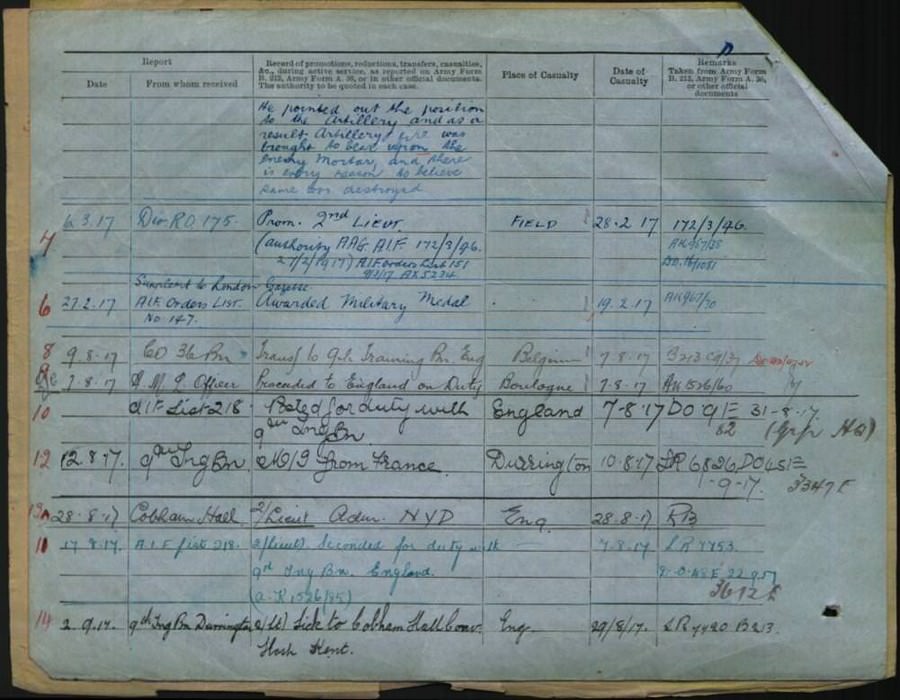 Report
Record of promotions, reductions, transfers, casualties, &c., during active service, as reported on Army Form B. 213, Army Form A. 36, or in other official documents. The authority to be quoted in each case.
Place of Casualty
Date of Casualty
Remarks Taken from Army Form B. 213, Army Form A. 36, or other official documents
Date
From whom received
He pointed out the position
to the Artillery and as a
result Artillery fire was
brought to bear upon the
enemy Mortar, and there
is every reason to believe
same was destroyed
4 6.3.17 Div. R.O. 175. Prom. 2nd Lieut. FIELD 28.2.17 172/3/96.
(authority AAG. AIF 172/3/96.
27/2/1917) AIF orders List 151
Supplement to London Gazette
6 27.2.17 A.I.F. Orders LIST. Awarded Military Medal 19.2.17 AK967/30
No. 147.
8 9.8.17 CO 36 Bn Transf to 9th Training Bn. Eng Belgium 7.8.17
7.8.17 Officer Proceeded to England on Duty Boulogne 7.8.17 AK1526/60
10 AIF List 218 Posted for duty with England 7-8-17 DO 91E 31-8-17
9th Tng Bn. 82
12 12.8.17. 9th Tng Bn M/I from France. Durrington 10.8.17 LR 6826 DO45E
-9-17. 3347E
13a 28-8-17 Cobham Hall 2/Lieut Adm. NYD Eng. 28.8.17
11 17.8.17. A.I.F. List 218. 2/Lieut) Seconded for duty with 7.8.17 LR 7753.
9th Tng Bn. England.
(A.K 1526/85) 3612E
14 2.9.17. 9th Tng Bn Durrington 2/Lt) Sick to Cobham Hall Conv. Eng. 29/8/17. LR 7420 B213.
Hosp Kent.